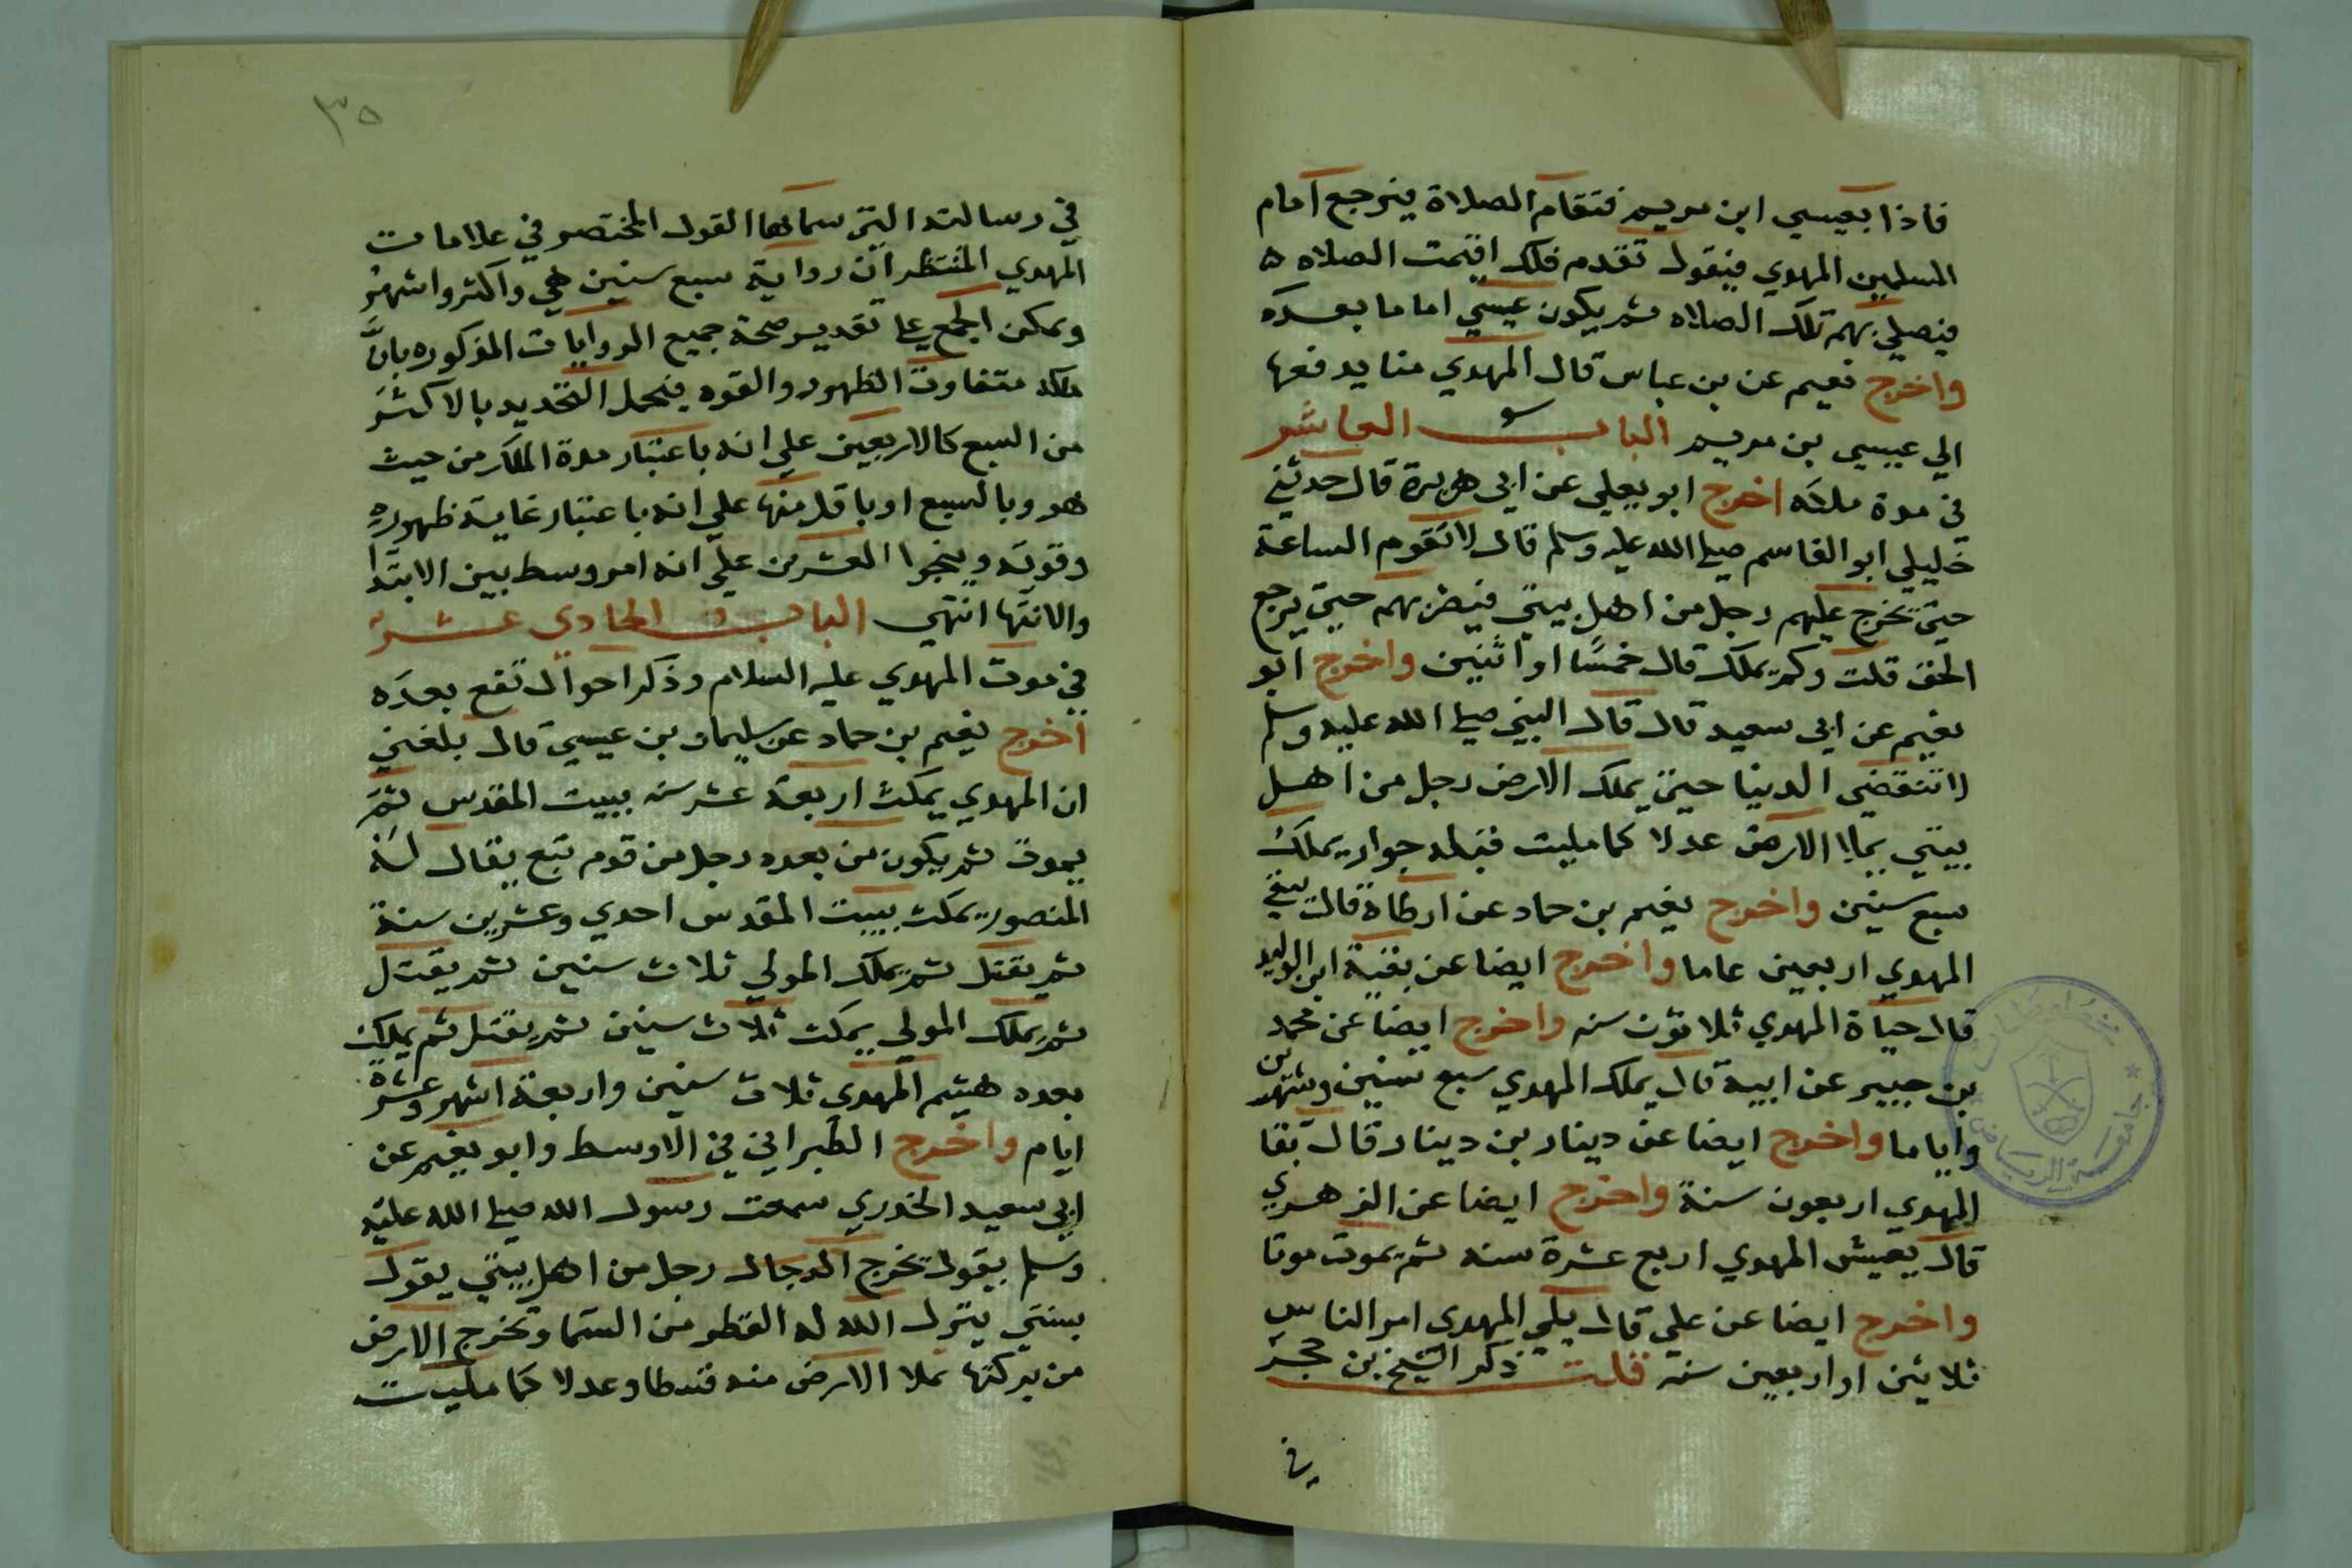 فاذا بعيسي ابن مريم فتقام الصلاة فيرجع امام
المسلمين المهدي فيقول تقدم فلك اقيمت الصلاه
فيصلي بهم تلك الصلاه ثم يكون عيسي اماما بعده
واخرج نعيم عن بن عباس قال المهدي منا يدفعها
الي عيسي بن مريم الباب العاشر
في مدة ملكه اخرج ابو يعلي عن ابي هريرة قال حدثني
خليلي ابو القاسم صلى الله عليه وسلم قال لا تقوم الساعة
حتي تخرج عليهم رجل من اهل بيتي فيضربهم حتي يرجع
الحق قلت وكم يملك قال خمسًا او اثنين واخرج ابو
نعيم عن ابي سعيد قال قال النبي صلي الله عليه وسلم
لا تنقضي الدنيا حتي يملك الارض رجل من اهل
بيتي يملا الارض عدلا كما مليت قبله جوار يملك
سبع سنين واخرج نعيم بن حماد عن ارطاة قال يبقي
المهدي اربعين عاما واخرج ايضا عن بقية ابن الوليد
قال حياة المهدي ثلاثون سنه واخرج ايضا عن محمد
بن جبير عن ابيه قال يملك المهدي سبع سنين وشهرين
واياما واخرج ايضا عن دينار بن دينار قال بقا
المهدي اربعون سنة واخرج ايضا عن الزهري
قال يعيش المهدي اربع عشرة سنه ثم يموت موتا
واخرج ايضا عن علي قال يلي المهدي امر الناس
ثلاثين او اربعين سنه قلت ذكر الشيخ بن حجر
في
٣٥
في رسالته التي سماها القول المختصر في علامات
المهدي المنتظر ان رواية سبع سنين هي واكثر واشهر
ويمكن الجمع علي تقدير صحة جميع الروايات المذكوره بانَّ
ملكه متفاوت الظهور والقوه فيحمل التحديد بالاكثر
من السبع كالاربعين علي انه باعتبار مدة الملك من حيث
هو وبالسبع او باقل منها علي انه باعتبار غاية ظهوره
وقوته وبنحوا العشرين علي انه امر وسط بين الابتدا
والانتها انتهي الباب الحادي عشر
في موت المهدي عليه السلام وذكر احوال تقع بعده
اخرج نعيم بن حماد عن سليمان بن عيسي قال بلغني
ان المهدي يمكث اربعة عشر سنه ببيت المقدس ثم
يموت ثم يكون من بعده رجل من قوم تبع يقال له
المنصور يمكث ببيت المقدس احدي وعشرين سنة
ثم يقتل ثم يملك المولي ثلاث سنين ثم يقتل
ثم يملك المولي يمكث ثلاث سنين ثم يقتل ثم يملك
بعده هشيم المهدي ثلاث سنين واربعة اشهر وعشرة
ايام واخرج الطبراني في الاوسط وابو نعيم عن
ابي سعيد الخدري سمعت رسول الله صلي الله عليه
وسلم يقول تخرج الدجال رجل من اهل بيتي يقول
بسنتي ينزل الله له القطر من السما وتخرج الارض
من بركتها تملا الارض منه قسطا وعدلا كما مليت
جامعة الرياض